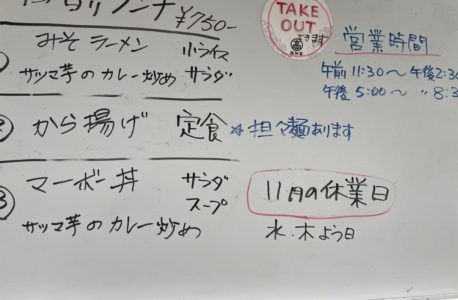 ¥750-
みそラーメン 小ライス
サツマ芋のカレー炒め サラダ
② から揚げ 定食 ☆担々麺あります
マーボー丼 サラダ
スープ
サツマ芋のカレー炒め
TAKE
OUT
できます
営業時間
午前11:30〜午後2:30
午後5:00〜 〃 8:3
11月の休業日
水・木よう日